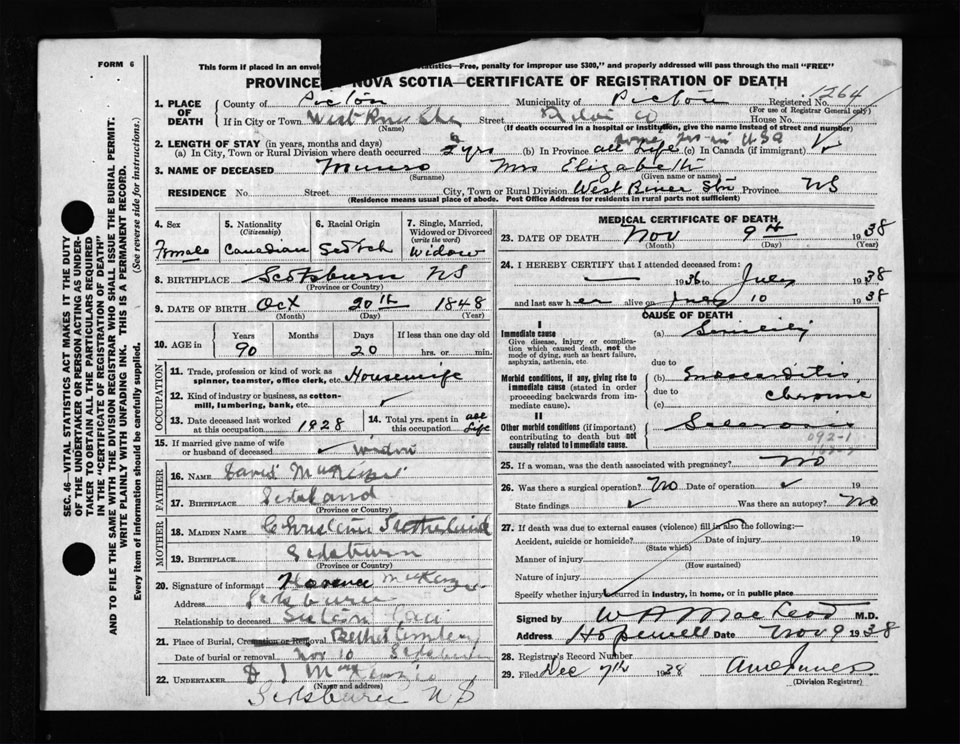 FORM 6
This form if placed in an enve tatistics—Free, penalty for improper use $300," and properly addressed will pass through the mail "FREE"
PROVINCE NOVA SCOTIA—CERTIFICATE OF REGISTRATION OF DEATH
1264
1. PLACE OF DEATH
County of Pictou Municipality of Pictou Registered No.
(For use of Registrar General only)
If in City or Town West River Street House No.
(Name) (If death occurred in a hospital or institution, give the name instead of street and number)
2. LENGTH OF STAY (in years, months and days)
(a) In City, Town or Rural Division where death occurred 2 yrs (b) In Province all Life (c) In Canada (if immigrant)
in USA
3. NAME OF DECEASED Munro Mrs Elizabeth
(Surname) (Given name or names)
RESIDENCE No. Street City, Town or Rural Division West River Stn Province NS
(Residence means usual place of abode. Post Office Address for residents in rural parts not sufficient)
4. Sex Female
5. Nationality (Citizenship) Canadian
6. Racial Origin Scotch
7. Single, Married, Widowed or Divorced (write the word) Widow
8. BIRTHPLACE Scotsburn NS
(Province or Country)
9. DATE OF BIRTH Oct 20th 1848
(Month) (Day) (Year)
10. AGE in Years Months Days If less than one day old
90 20 hrs. or min.
OCCUPATION
11. Trade, profession or kind of work as spinner, teamster, office clerk, etc. Housewife
12. Kind of industry or business, as cotton-mill, lumbering, bank, etc. ✓
13. Date deceased last worked at this occupation 1928
14. Total yrs. spent in this occupation all Life
15. If married give name of wife or husband of deceased ✓ widow
FATHER
16. NAME David
17. BIRTHPLACE Scotland
(Province or Country)
MOTHER
18. MAIDEN NAME Sutherland
19. BIRTHPLACE Scotsburn
(Province or Country)
20. Signature of informant Florence McKenzie
Address Scotsburn
Relationship to deceased
21. Place of Burial, Cremation or Removal Bethel Cemetery
Date of burial or removal Nov 10 Scotsburn
22. UNDERTAKER D J MacKenzie
(Name and address)
Scotsburn NS
MEDICAL CERTIFICATE OF DEATH
23. DATE OF DEATH Nov 9th 1938
(Month) (Day) (Year)
24. I HEREBY CERTIFY that I attended deceased from:
1936 to July 1938
and last saw her alive on July 10 1938
CAUSE OF DEATH
I
Immediate cause (a) Senility
Give disease, injury or complication which caused death, not the mode of dying, such as heart failure, asphyxia, asthenia, etc.
due to
Morbid conditions, if any, giving rise to immediate cause (stated in order proceeding backwards from immediate cause).
(b) Endocarditis,
due to chronic
(c)
II
Other morbid conditions (if important) contributing to death but not causally related to immediate cause. Sclerosis
092-1
25. If a woman, was the death associated with pregnancy? No
26. Was there a surgical operation? No Date of operation ✓ 19
State findings ✓ Was there an autopsy? No
27. If death was due to external causes (violence) fill in also the following:—
Accident, suicide or homicide? Date of injury 19
(State which)
Manner of injury
(How sustained)
Nature of injury
Specify whether injury occurred in industry, in home, or in public place
Signed by W A MacLeod M.D.
Address Hopewell Date Nov 9 1938
28. Registrar's Record Number
29. Filed Dec 7th 1938
(Division Registrar)
SEC. 46—VITAL STATISTICS ACT MAKES IT THE DUTY
OF THE UNDERTAKER OR PERSON ACTING AS UNDER-
TAKER TO OBTAIN ALL THE PARTICULARS REQUIRED
IN THE "CERTIFICATE OF REGISTRATION OF DEATH"
AND TO FILE THE SAME WITH THE DIVISION REGISTRAR WHO SHALL ISSUE THE BURIAL PERMIT.
WRITE PLAINLY WITH UNFADING INK. THIS IS A PERMANENT RECORD.
Every item of information should be carefully supplied. (See reverse side for instructions.)